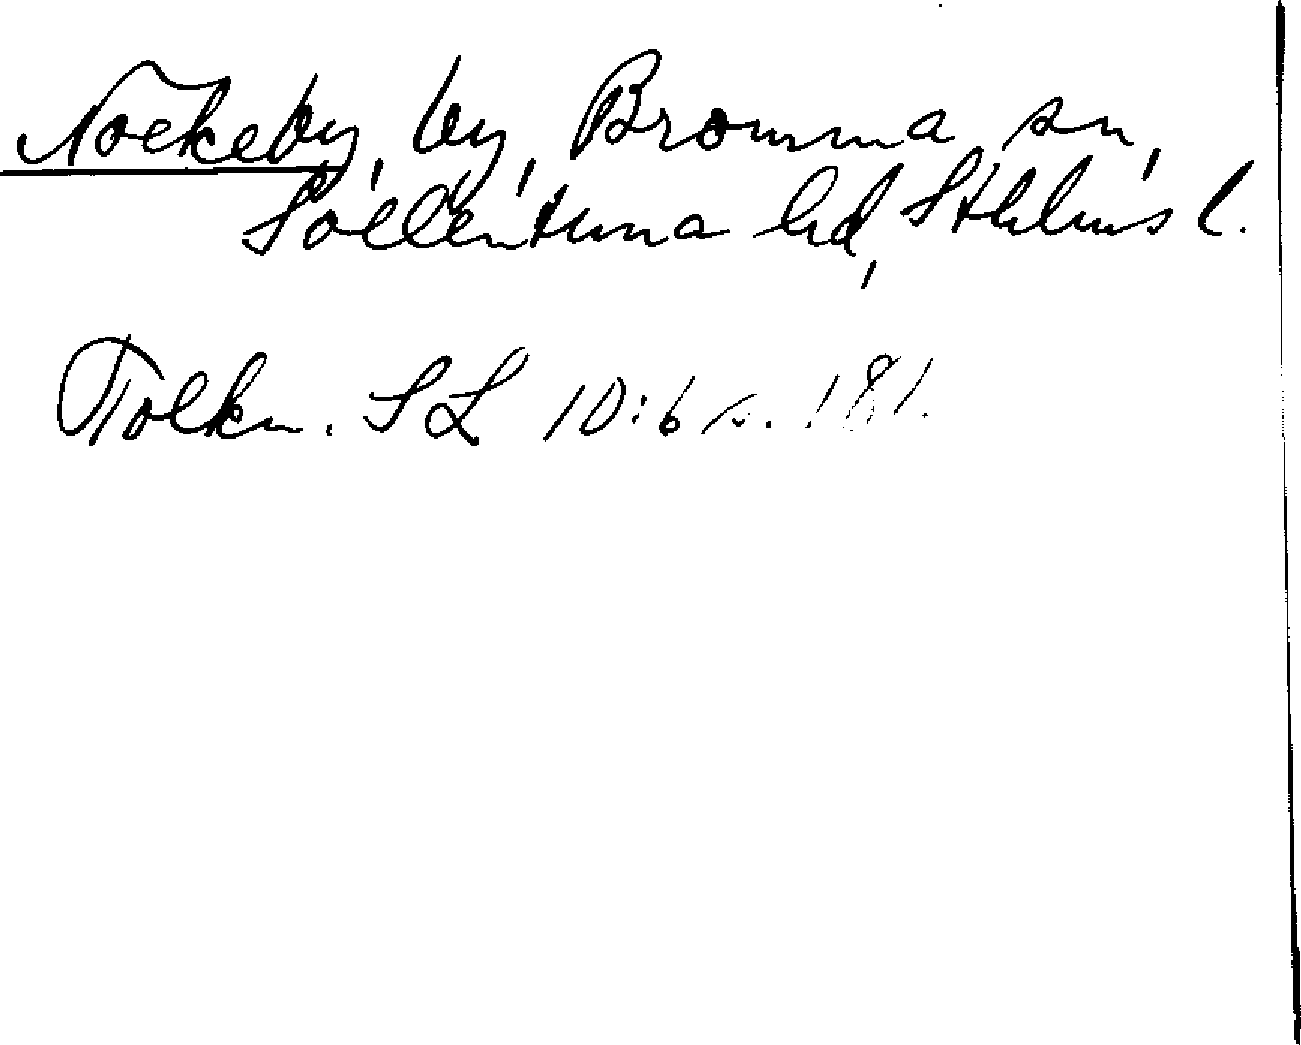 Nockeby, by, Bromma sn,
Sollentuna hd, Sthlms l.
Tolkn. SL 10:6 s. 181.